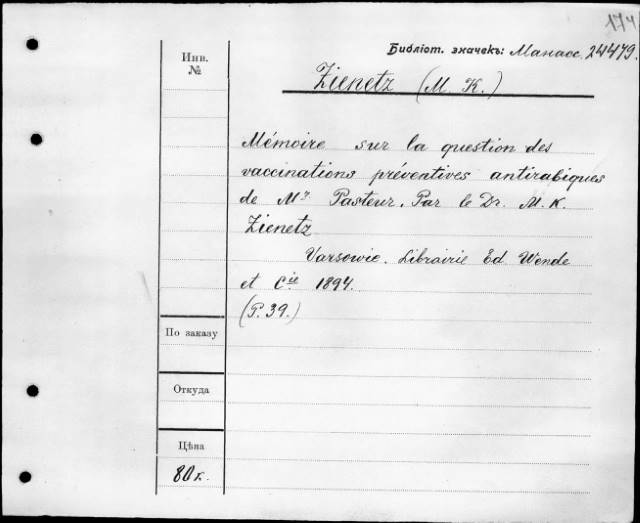 174
Библіот. значекъ: Манасс. 24479.
Инв.
№
Zienetz (M. K.)
Mémoire sur la question des
vaccinations préventives antirabiques
de Mr Pasteur. Par le Dr. M. K.
Zienetz
Varsovie. Librairie Ed. Wende
et Cie 1894.
(P. 39.)
По заказу
Откуда
Цѣна
80 к.